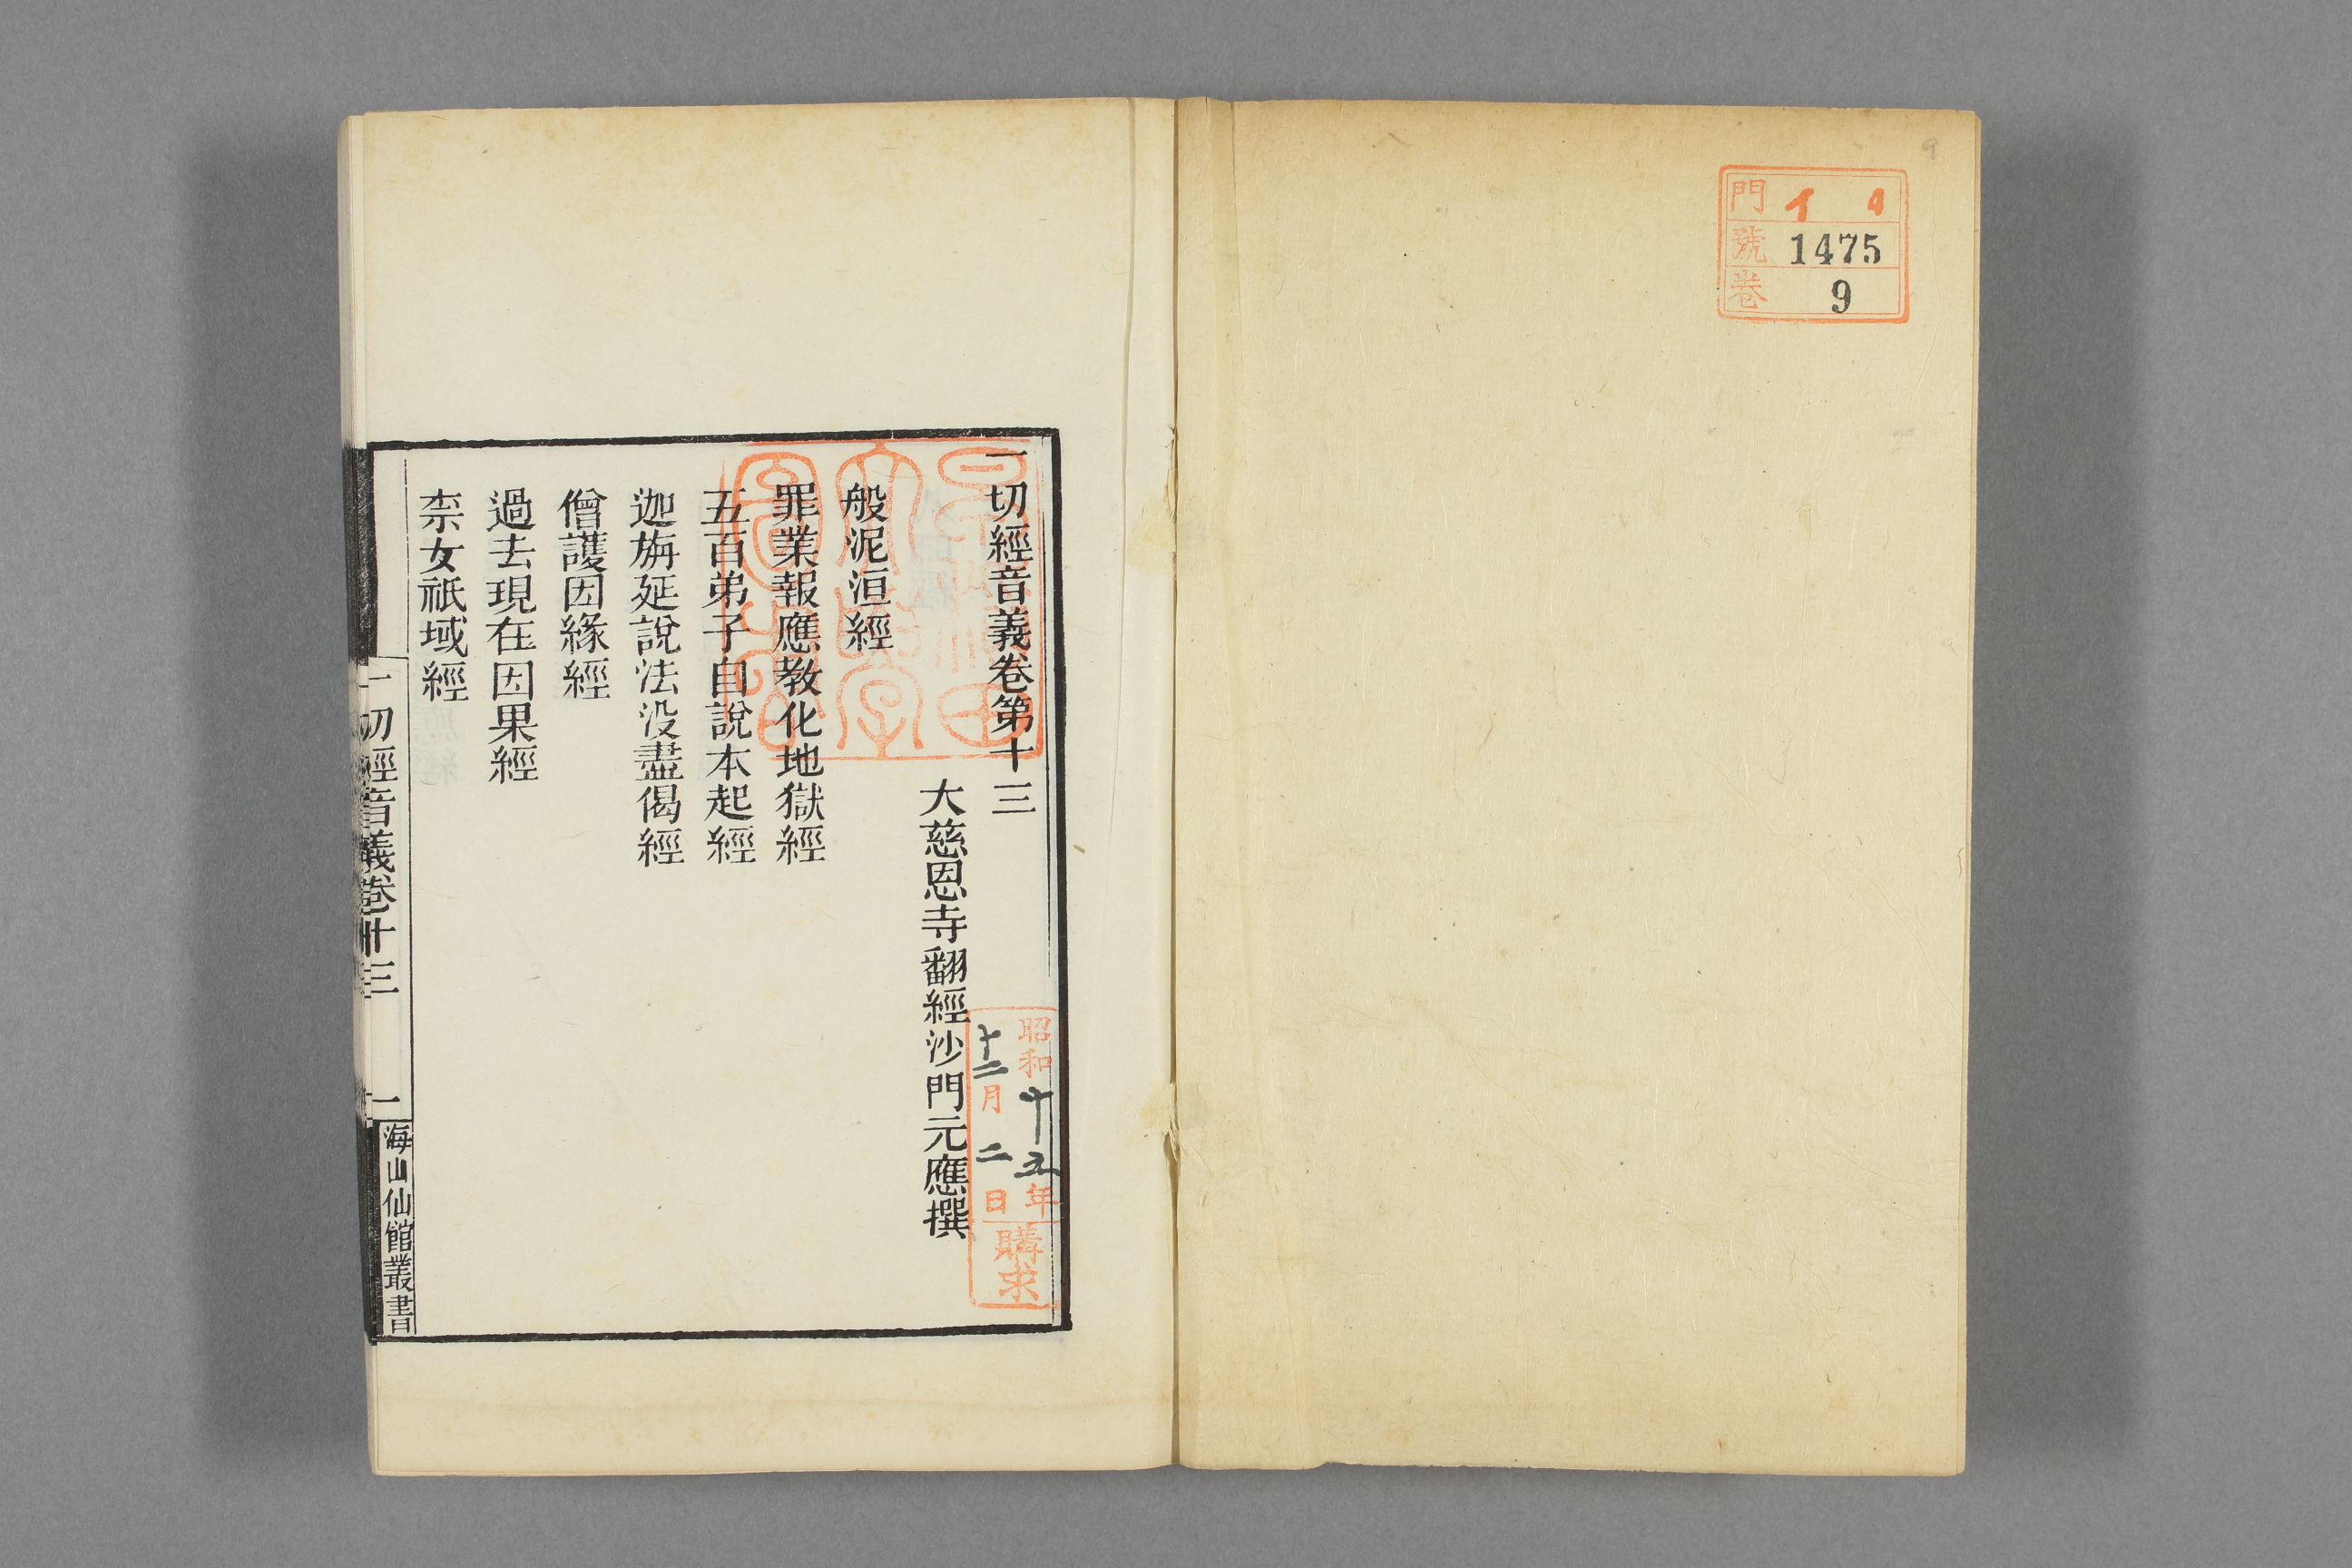 門 イ 4
號 1475
卷 9
一切經音義卷第十三
大慈恩寺翻經沙門元應撰
般泥洹經
罪業報應教化地獄經
五百弟子自說本起經
迦旃延說法没盡偈經
僧護因緣經
過去現在因果經
柰女祇域經
一切經音義卷十三
一
海山仙館叢書
昭和十五年
十二月二日
購求
早稻田
大學
圖書